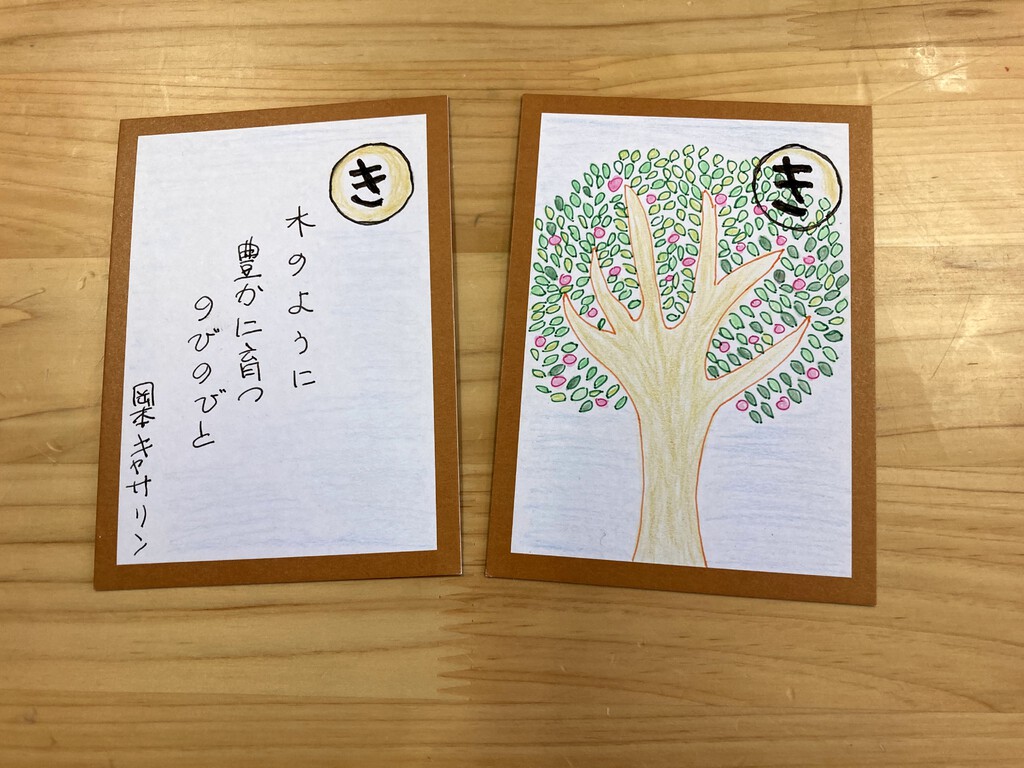 き
木のように
豊かに育つ
のびのびと
岡本キャサリン
き